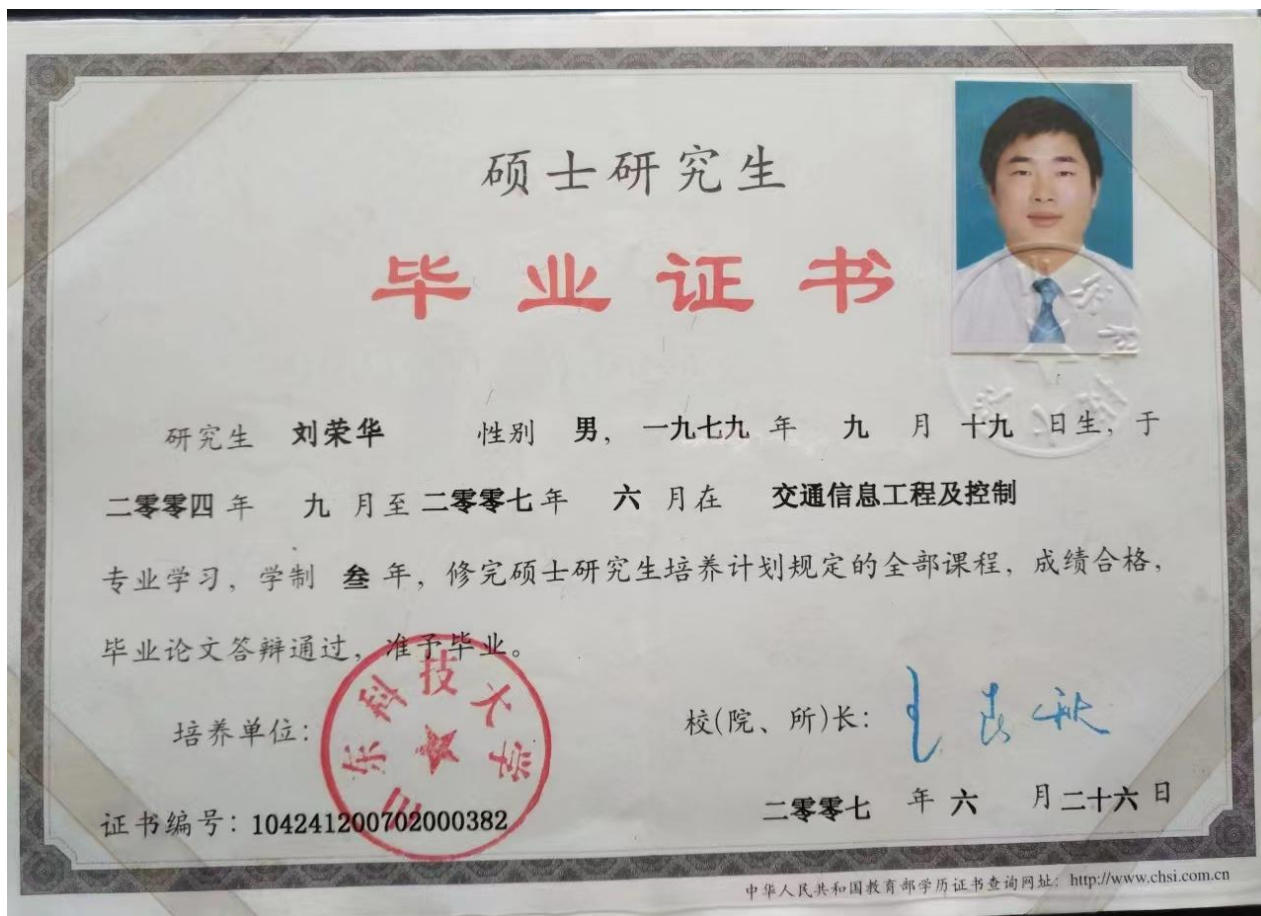 硕士研究生
毕业证书
研究生 刘荣华 性别 男，一九七九 年 九 月 十九 日生，于
二零零四 年 九 月至 二零零七 年 六 月在 交通信息工程及控制
专业学习，学制 叁 年，修完硕士研究生培养计划规定的全部课程，成绩合格，
毕业论文答辩通过，准予毕业。
山东科技大学
培养单位：
校(院、所)长：
证书编号：104241200702000382
二零零七 年 六 月 二十六 日
中华人民共和国教育部学历证书查询网址：http://www.chsi.com.cn